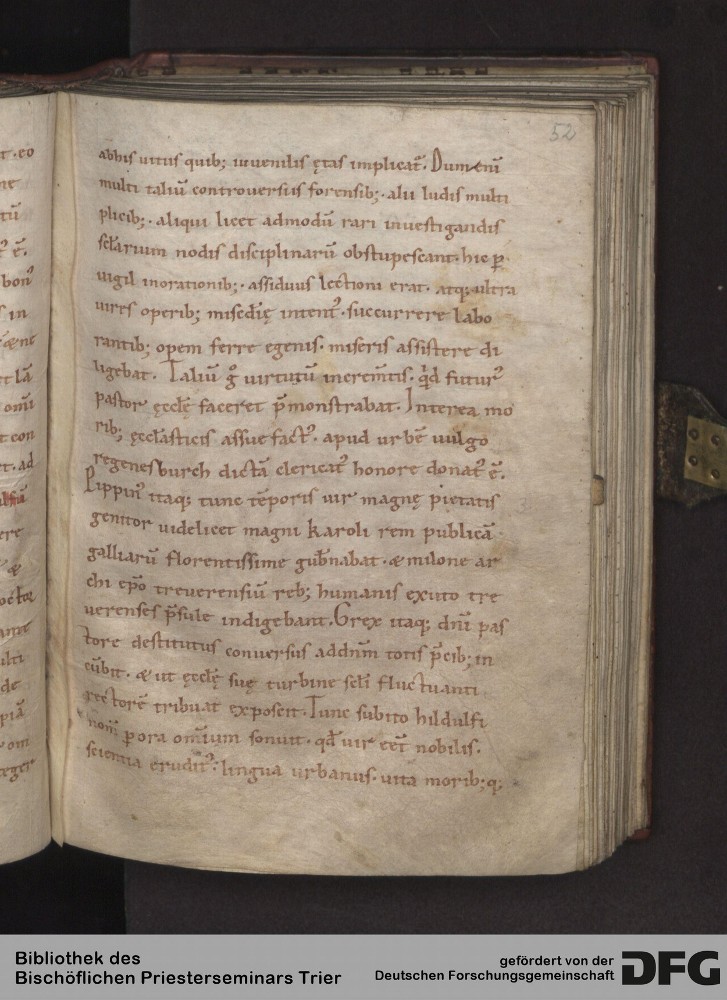 52
abbis uitus quib; iuuenilis ętas implicat̄. Dum eni̅
multi taliu̅ controuersiis forensib;. alii ludis multi
plicib;. aliqui licet admodu̅ rari inuestigandis
scl̅arium nodis disciplinaru̅ obstupescant. hic ꝑ
uigil inorationib;. assiduus lectioni erat. atq; ultra
uires operib; misc̅dię intent᾽. succurrere labo
rantib; opem ferre egenis. miseris assistere di
ligebat. Taliu̅ gͦ uirtutu̅ increm̅tis. qͥd futur᾽
pastor ęccl̅ę faceret p̅monstrabat. Interea mo
rib; ęccl̅asticis assuefact᾽. apud urbe̅ uulgo
regenesburch dicta̅ clericat᾽ honore donat᾽ e̅.
Pippin᾽ itaq; tunc te̅poris uir magnę pietatis
genitor uidelicet magni karoli rem publica̅
galliaru̅ florentissime gub̅nabat. & milone ar
chi ep̅o treuerensiu̅ reb; humanis exuto tre
uerenses p̅sule indigebant. Grex itaq; dn̅i pas
tore destitutus conuersus addn̅m totis p̅cib; in
cu̅bit. & ut ęccl̅ę suę turbine scl̅i fluctuanti
rectore̅ tribuat exposcit. Tunc subito hildulfi
nom̅ ꝑ ora om̅ium sonuit. qd̅ uir eet̅ nobilis.
scientia erudit᾽. lingua urbanus. uita morib;q;
Bibliothek des
Bischöflichen Priesterseminars Trier
gefördert von der
Deutschen Forschungsgemeinschaft
DFG